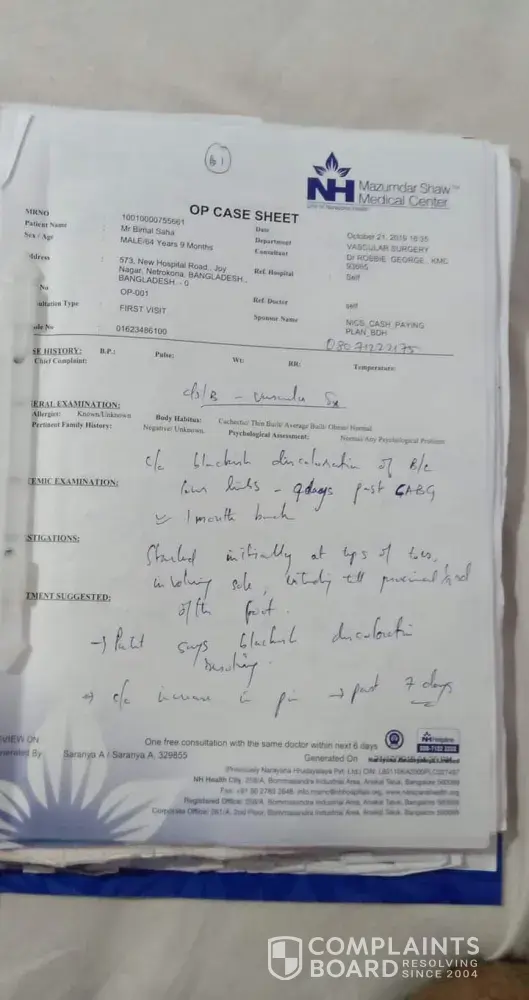 B1
NH Mazumdar Shaw™
Medical Center
OP CASE SHEET
MRNO : 10010000755661
Date October 21, 2019 16:35
Patient Name : Mr Bimal Saha
Department VASCULAR SURGERY
Sex / Age MALE/64 Years 9 Months
Consultant Dr ROBBIE GEORGE, KMC
ddress : 573, New Hospital Road., Joy
Nagar, Netrokona, BANGLADESH.,
BANGLADESH, - 0
Ref. Hospital : Self
No OP-001
Ref. Doctor self
sultation Type : FIRST VISIT
Sponsor Name NICS_CASH_PAYING
PLAN_BDH
No : 01623486100
SE HISTORY: B.P.: Pulse: Wt: RR: Temperature:
Chief Complaint:
c/s/B -
ERAL EXAMINATION:
Allergies: Known/Unknown Body Habitus: Cachectic/ Thin Built/ Average Built/ Obese/ Normal
Pertinent Family History: Negative/ Unknown. Psychological Assessment: Normal/Any Psychological Problem
c/o blackish discoloration of B/L
TEMIC EXAMINATION:
lower limbs - 9days past CABG
1 month back
STIGATIONS:
Started initially at tips of toes,
involving sole, till proximal
TMENT SUGGESTED:
of the foot.
→ Patient says blackish discoloration
resolving.
→ c/o increase in pain → past 7 days
VIEW ON
One free consultation with the same doctor within next 6 days
nerated By Saranya A / Saranya A, 329855
Generated On
(Previously Narayana Hrudayalaya Pvt. Ltd.)
NH Health City, 258/A, Bommasandra Industrial Area, Anekal Taluk, Bangalore
Registered Office: 258/A, Bommasandra Industrial Area, Anekal Taluk, Bangalore
Corporate Office: 261/A, 2nd Floor, Bommasandra Industrial Area, Anekal Taluk, Bangalore
COMPLAINTS
BOARD RESOLVING
SINCE 2004